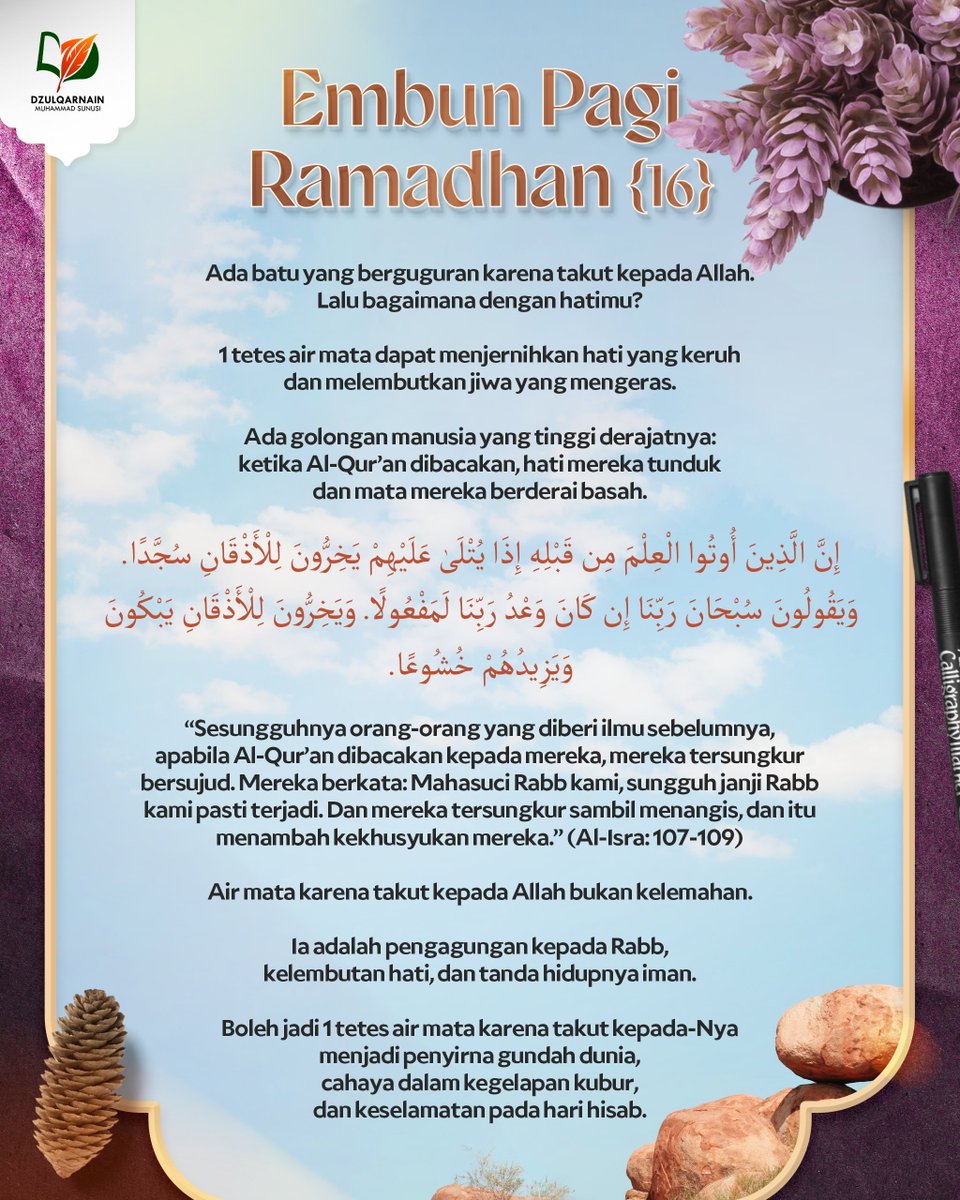 DZULQARNAIN
MUHAMMAD SUNUSI
Embun Pagi
Ramadhan {16}
Ada batu yang berguguran karena takut kepada Allah.
Lalu bagaimana dengan hatimu?
1 tetes air mata dapat menjernihkan hati yang keruh
dan melembutkan jiwa yang mengeras.
Ada golongan manusia yang tinggi derajatnya:
ketika Al-Qur’an dibacakan, hati mereka tunduk
dan mata mereka berderai basah.
إِنَّ الَّذِينَ أُوتُوا الْعِلْمَ مِن قَبْلِهِ إِذَا يُتْلَىٰ عَلَيْهِمْ يَخِرُّونَ لِلْأَذْقَانِ سُجَّدًا.
وَيَقُولُونَ سُبْحَانَ رَبِّنَا إِن كَانَ وَعْدُ رَبِّنَا لَمَفْعُولًا. وَيَخِرُّونَ لِلْأَذْقَانِ يَبْكُونَ
وَيَزِيدُهُمْ خُشُوعًا.
“Sesungguhnya orang-orang yang diberi ilmu sebelumnya,
apabila Al-Qur’an dibacakan kepada mereka, mereka tersungkur
bersujud. Mereka berkata: Mahasuci Rabb kami, sungguh janji Rabb
kami pasti terjadi. Dan mereka tersungkur sambil menangis, dan itu
menambah kekhusyukan mereka.” (Al-Isra: 107-109)
Air mata karena takut kepada Allah bukan kelemahan.
Ia adalah pengagungan kepada Rabb,
kelembutan hati, dan tanda hidupnya iman.
Boleh jadi 1 tetes air mata karena takut kepada-Nya
menjadi penyirna gundah dunia,
cahaya dalam kegelapan kubur,
dan keselamatan pada hari hisab.
Calligraphy